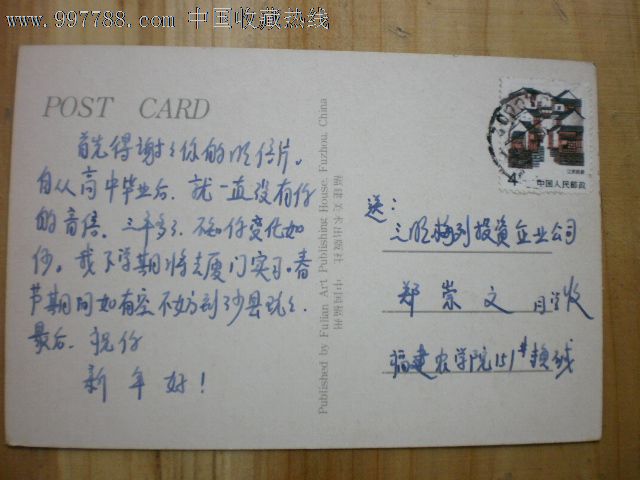 www.997788.com 中国收藏热线
POST CARD
首先得谢谢你的明信片。
自从高中毕业后，就一直没有你
的音信。三年多了，不知你变化如
何。我下学期将去厦门实习。春
节期间如有空不妨到沙县玩玩
最后，祝你
新年好！
Published by Fujian Art Publishing House, Fuzhou, China
福建美术出版社 中国福州
4
江苏民居
中国人民邮政
送：
三明梅列投资企业公司
郑崇文 同学收
福建农学院151#赖